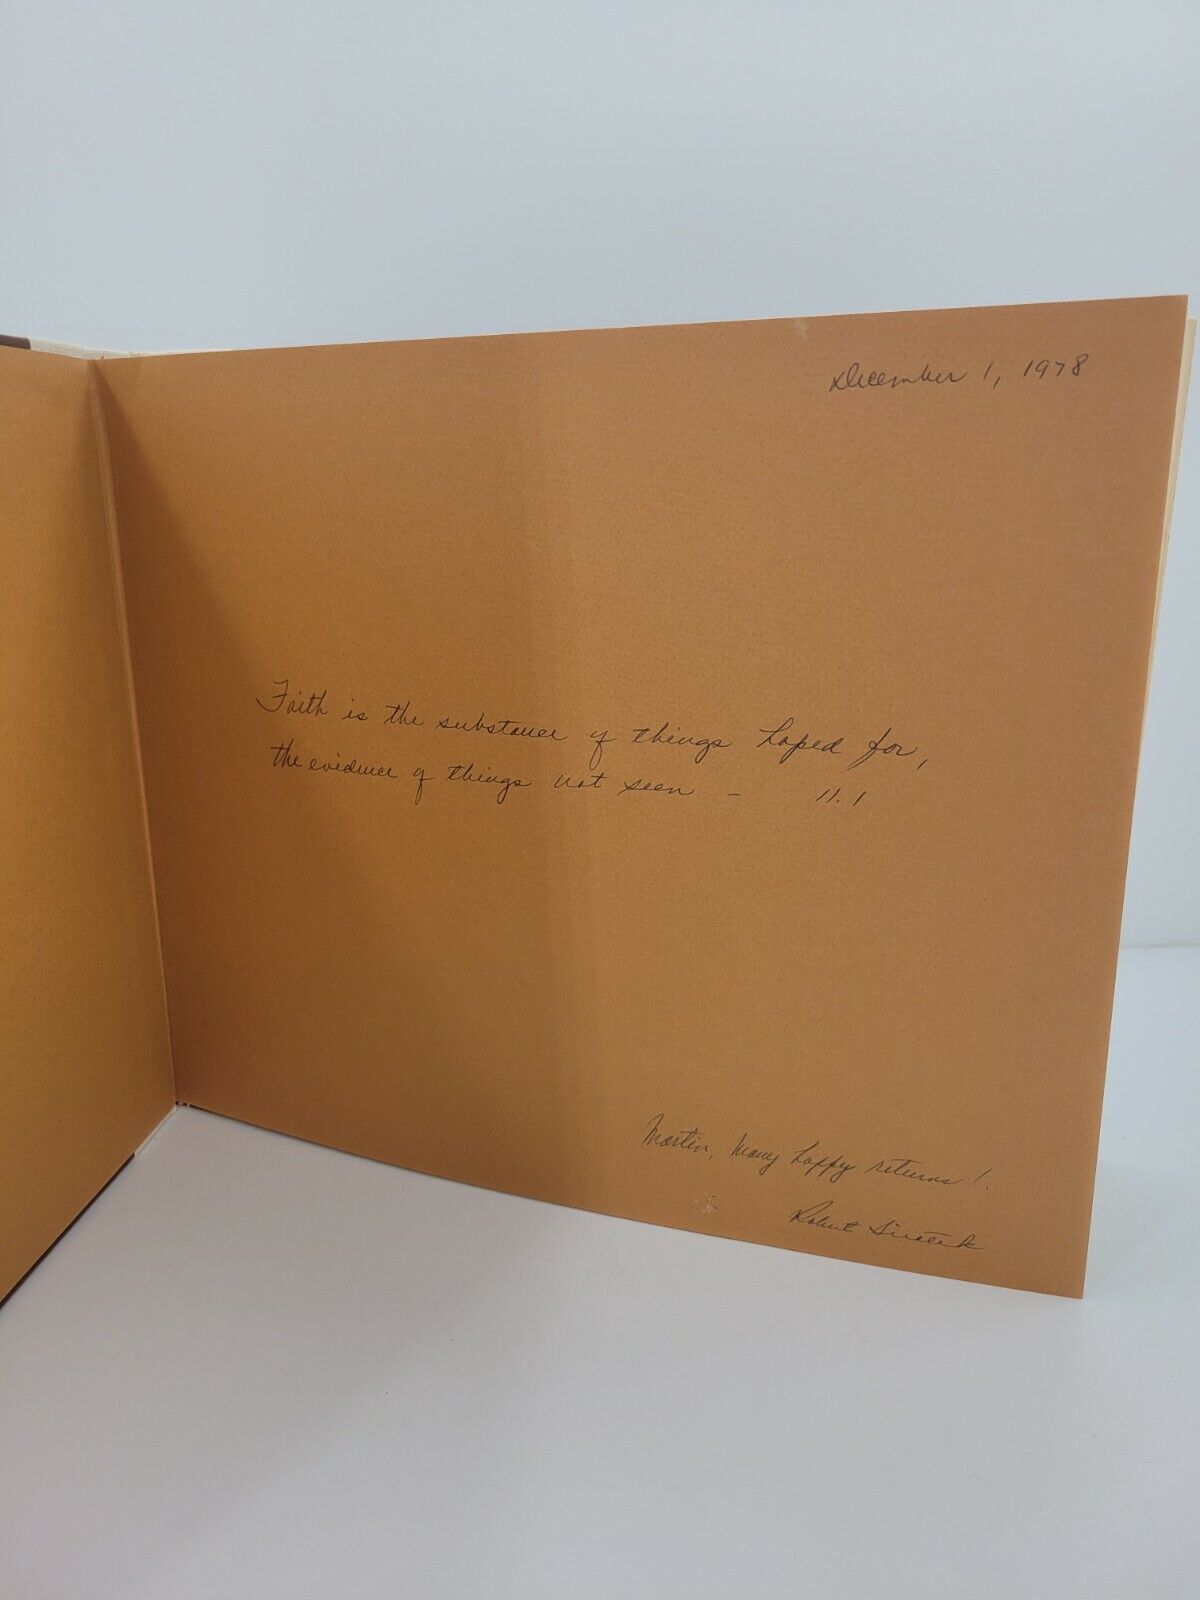 December 1, 1978
Faith is the substance of things hoped for,
the evidence of things not seen – 11.1
Martin, Many happy returns!
Robert